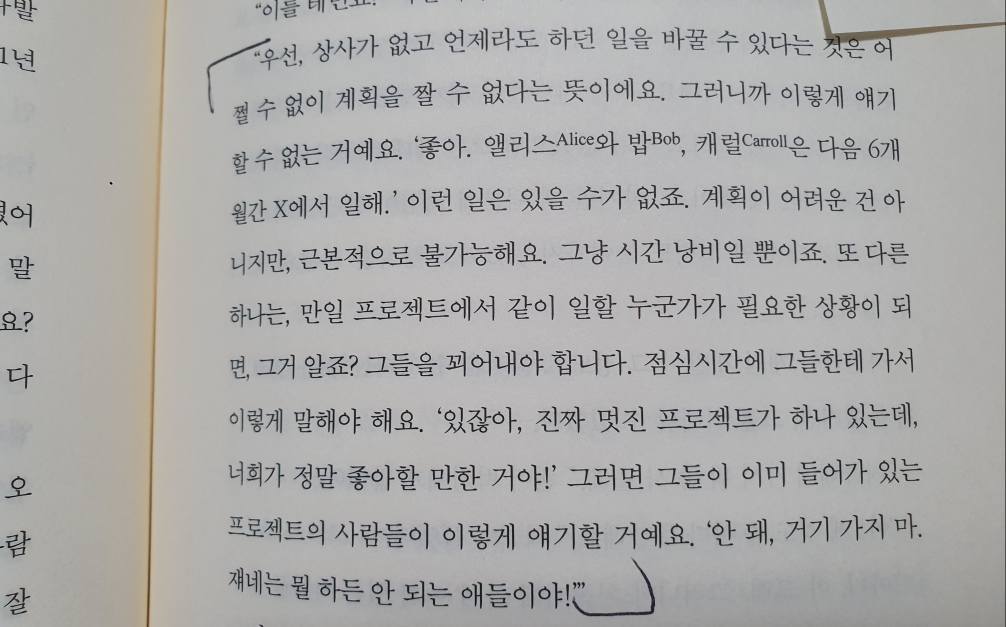 발
1년
"이를
"우선, 상사가 없고 언제라도 하던 일을 바꿀 수 있다는 것은 어
쩔 수 없이 계획을 짤 수 없다는 뜻이에요. 그러니까 이렇게 얘기
할 수 없는 거예요. '좋아. 앨리스Alice와 밥Bob, 캐럴Carroll은 다음 6개
월간 X에서 일해.' 이런 일은 있을 수가 없죠. 계획이 어려운 건 아
니지만, 근본적으로 불가능해요. 그냥 시간 낭비일 뿐이죠. 또 다른
하나는, 만일 프로젝트에서 같이 일할 누군가가 필요한 상황이 되
면, 그거 알죠? 그들을 꾀어내야 합니다. 점심시간에 그들한테 가서
이렇게 말해야 해요. '있잖아, 진짜 멋진 프로젝트가 하나 있는데,
너희가 정말 좋아할 만한 거야!' 그러면 그들이 이미 들어가 있는
프로젝트의 사람들이 이렇게 얘기할 거예요. '안 돼, 거기 가지 마.
쟤네는 뭘 하든 안 되는 애들이야!'"
어
말
요?
다
오
람
잘